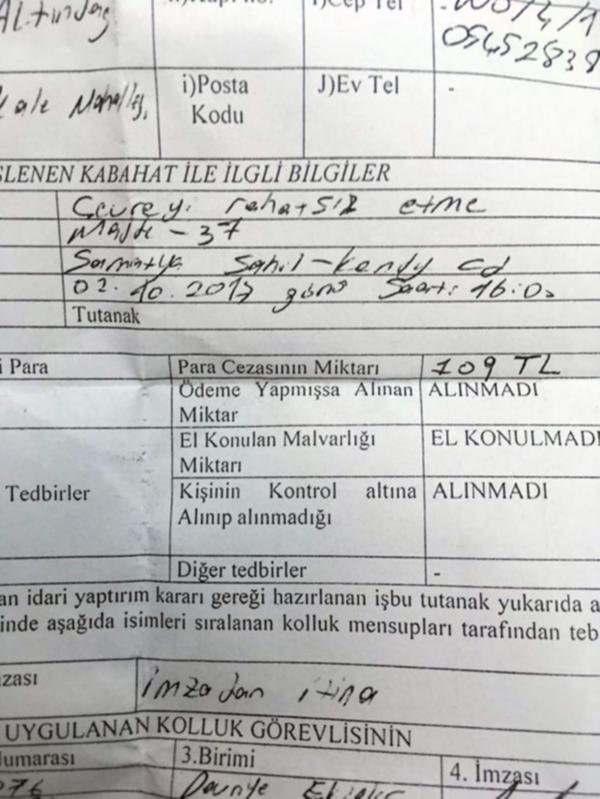 Altındağ
i)Cep Tel
05452838
Kale Mahallesi,
i)Posta
Kodu
J)Ev Tel
-
ŞLENEN KABAHAT İLE İLGLİ BİLGİLER
Çevreyi rahatsız etme
Madde - 37
Samatya Sahil-kendy cd
02.10.2017 günü Saat: 16:00
Tutanak
i Para
Para Cezasının Miktarı
109 TL
Ödeme Yapmışsa Alınan
Miktar
ALINMADI
El Konulan Malvarlığı
Miktarı
EL KONULMADI
Tedbirler
Kişinin Kontrol altına
Alınıp alınmadığı
ALINMADI
Diğer tedbirler
-
an idari yaptırım kararı gereği hazırlanan işbu tutanak yukarıda a
inde aşağıda isimleri sıralanan kolluk mensupları tarafından teb
zası
imzadan itina
UYGULANAN KOLLUK GÖREVLİSİNİN
umarası
3.Birimi
4. İmzası
Devriye Ekipler